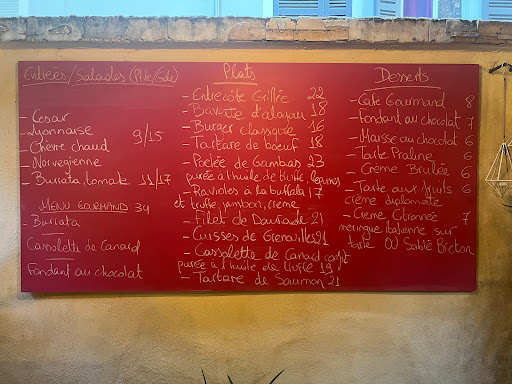 Entrées/Salades (Ptte/Gde)
- César
- Lyonnaise
- Chèvre chaud 9/15
- Norvégienne
- Burrata, tomate 11/17
MENU GOURMAND 34
- Burrata
Cassolette de Canard
Fondant au chocolat
Plats
- Entrecôte Grillée 22
- Bavette d'aloyau 18
- Burger classique 16
- Tartare de boeuf 18
- Poêlée de Gambas 23
purée à l'huile de truffe légumes
- Ravioles à la buffala 17
et truffe, jambon, crème
- Filet de Daurade 21
- Cuisses de Grenouilles 21
- Cassolette de Canard confit
purée à l'huile de truffe 19
- Tartare de Saumon 21
Desserts
- Café Gourmand 8
- Fondant au chocolat 7
- Mousse au chocolat 6
- Tarte Praline 6
- Crème Brûlée 6
- Tarte aux fruits 6
crème diplomate
- Crème Citronnée 7
meringue italienne sur
tarte OU Sablé Breton